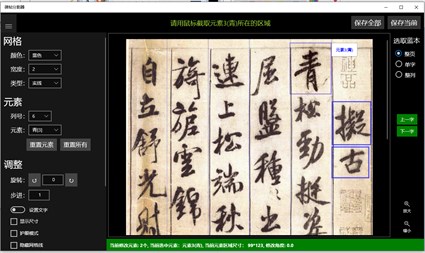 碑帖分割器
请用鼠标截取元素3(青)所在的区域
保存全部
保存当前
网格
颜色: 蓝色
宽度: 2
类型: 实线
元素
列号: 6
元素: 青(3)
重置元素
重置所有
调整
旋转: 0
步进: 1
设置文字
显示尺寸
护眼模式
隐藏网格线
元素3(青)
擬古
青松勁挺姿
屈盤種〻出
連上松端秋
旖旎雲錦
自立舒光射
选取蓝本
整页
单字
整列
上一字
下一字
放大
缩小
当前修改元素: 2个, 当前选中元素: 元素3(青), 当前元素区域尺寸: 89*123, 修改角度: 0.0